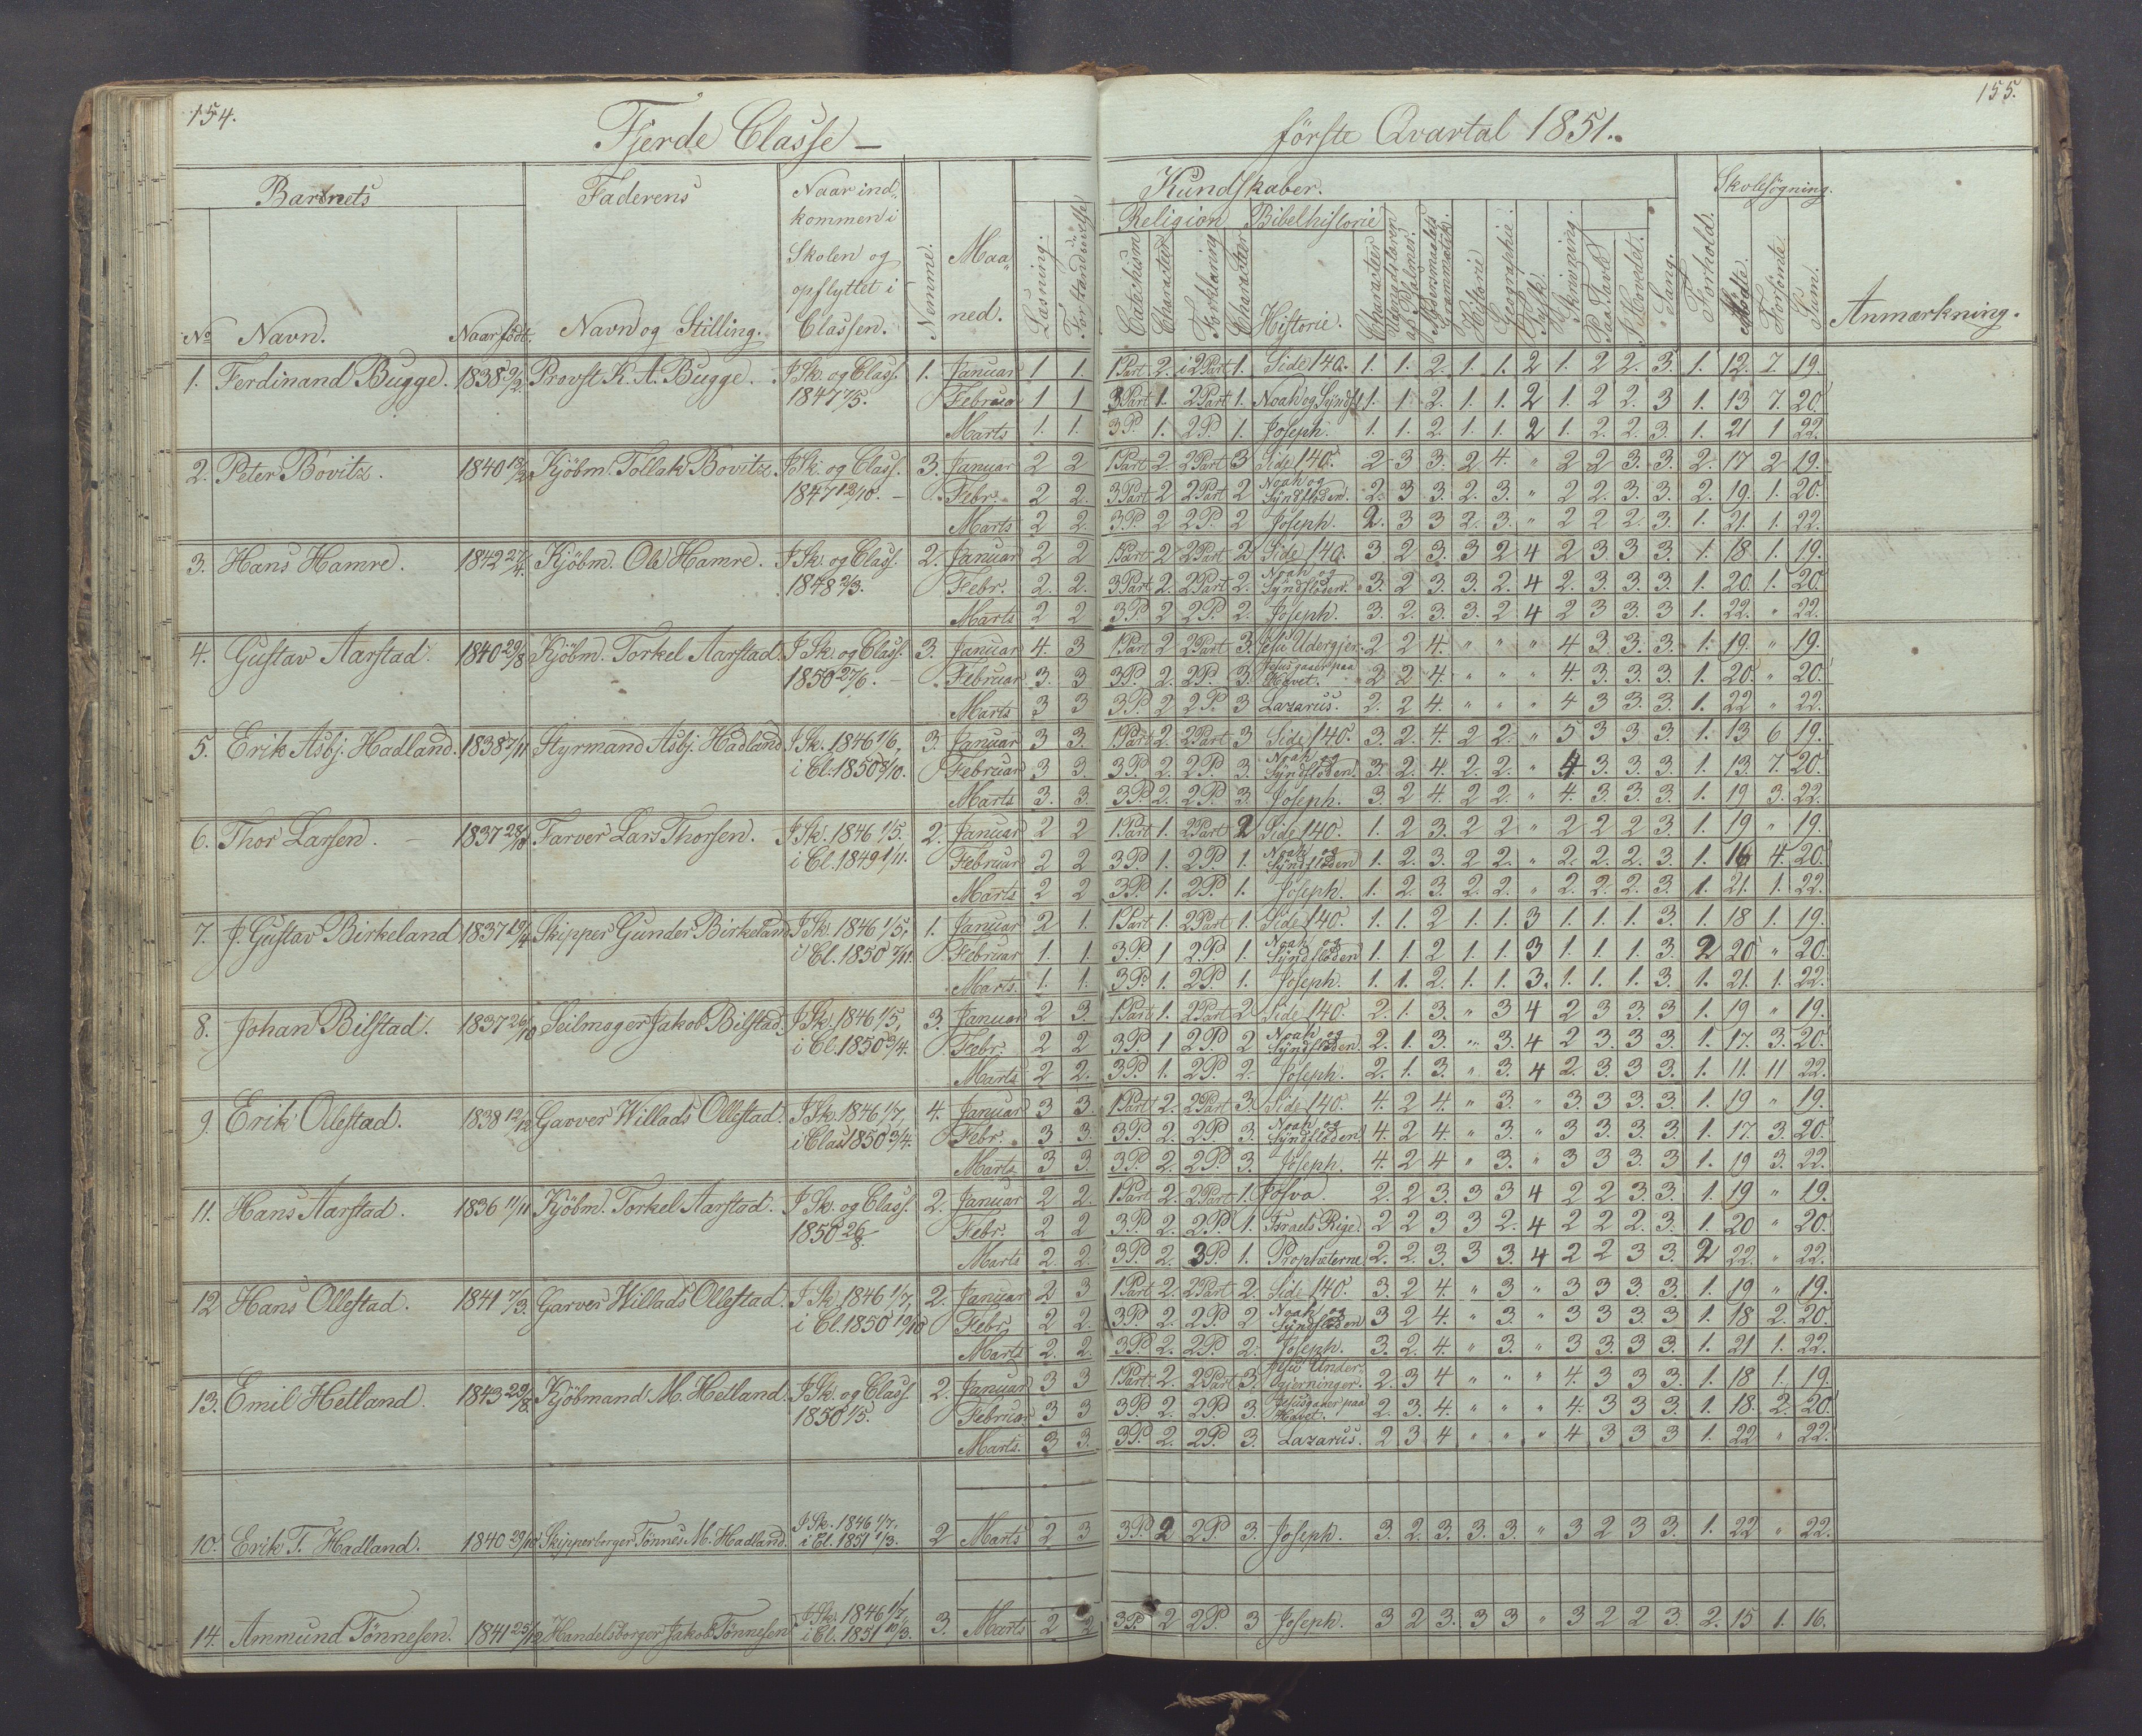 154.
155.
Fjerde Classe –
første Qvartal 1851.
Barnets
Faderens
Naar ind-
kommen i
Skolen og
opflyttet i
Classen.
Nemme.
Maa-
ned.
Læsning.
Forstandsøvelse
Kundskaber.
Religion
Bibelhistorie
Skolesøgning.
No
Navn.
Naar født.
Navn og Stilling.
Catechism
Character
Forklaring
Character
Historie.
Character
Modersmaalets Grammatik.
Historie
Geographie.
Tydsk.
Skrivning.
Paa Tavle
I Hovedet.
Sang.
Forhold.
Mødte.
Forsømte.
Sum.
Anmærkning.
1. Ferdinand Bugge. 1838 9/2. Provst K. A. Bugge. I Sk. og Class. 1. Januar 1 1. 1 Part 2. i 2 Part 1. Side 140. 1. 1. 2. 1. 1. 2 1. 2 2. 3. 1. 12. 7. 19.
1847 Februar 1 1 3 Part 1. 2 Part 1. Noah og Syndfl. 1. 1 2. 1. 1. 2 1. 2 2. 3 1. 13 7. 20.
Marts 1. 1. 3 P. 1. 2 P. 1. Joseph. 1. 1. 2. 1. 1. 2 1. 2. 2. 3. 1. 21 1 22.
2. Peter Bovitz. 1840 Kjöbm. Tollak Bovitz. I Sk. og Class. 3. Januar 2 2 1 Part 2. 2 Part 3 Side 140. 2 3 3. 2 4. " 2 2 3. 3. 2. 17 2 19.
1847 12/10. – Febr. 2 2. 3 Part 2 2 Part 2 Noah og Syndfloden. 2. 3 3. 2. 3. " 2 2. 3. 3. 2. 19. 1. 20.
Marts 2 2. 3 P. 2 2 P. 2 Joseph. 2. 3 3 2. 3. " 2 2 2. 3. 1. 21. 1. 22.
3. Hans Hamre. 1842 27/4. Kjöbm. Ole Hamre. I Sk. og Class. 2. Januar 2 2 1 Part 2 2 Part 2 Side 140. 3 2 3. 3 2 4 2 3 3 3. 1. 18 1. 19.
1848 2/3. Febr. 2. 2. 3 Part 2. 2 Part 2. Noah og Syndfloden. 3. 2 3. 3. 2. 4 2. 3. 3. 3. 1. 20. 1. 20.
Marts 2 2 3 P. 2 2 P. 2. Joseph. 3. 2. 3. 3. 2 4 2 3 3 3 1. 22. " 22.
4. Gustav Aarstad. 1840 29/8 Kjöbm. Torkel Aarstad. I Sk. og Class. 3. Januar 4. 3 1 Part 2 2 Part 3. Jesu Undergjer. 2 2 4. " " " 4 3. 3. 3. 1. 19. " 19.
1850 27/6. – Februar 3. 3 3 P. 2. 2 P. 3. Jesus gaaer paa Havet. 2 2 4. " " " 4. 3. 3. 3. 1. 20. " 20.
Marts 3 3 3 P. 2 2 P. 3 Lazarus. 2. 2 4. " " " 4 3 3. 3. 1. 22 " 22.
5. Erik Asbj. Hadland. 1838 Styrmand Asbj. Hadland I Sk. 1846 1/6, 3. Januar 3 3. 1 Part 2. 2 Part 3 Side 140. 3. 2. 4. 2 2. " 5 3 3. 3. 1. 13 6 19.
i Cl. 1850 Februar 3 3. 3 P. 2. 2 P. 3. Noah og Syndfloden. 3. 2. 4. 2. 2. " 4. 3. 3. 3. 1. 13. 7. 20.
Marts 3. 3. 3 P. 2. 2 P. 3. Joseph. 3. 2 4. 2 2. " 4. 3. 3. 3. 1. 19 3. 22.
6. Thor Larsen. – 1837 28/10 Farver Lars Thorsen. I Sk. 1846 1/5. 2. Januar 2 2 1 Part 1. 2 Part 2 Side 140. 1. 2 3. 2 2 " 2 2 2 3. 1. 19 " 19.
i Cl. 1849 1/11. Februar 2 2 3 P. 1. 2 P. 1. Noah og Syndfloden 1. 2. 3. 2 2. " 2. 2. 2. 3. 1. 16 4. 20.
Marts 2 2 3 P. 1. 2 P. 1. Joseph. 1. 2. 3. 2. 2. " 2. 2. 2. 3. 1. 21. 1. 22.
7. J. Gustav Birkeland 1837 19/4 Skipper Gunder Birkeland I Sk. 1846 1/5, 1. Januar 2 1. 1 Part 1. 2 Part 1. Side 140. 1. 1. 2 1. 1. 3 1. 1. 1. 3. 1. 18 1. 19.
i Cl. 1850 Februar 1. 1. 3 P. 1 2 P. 1. Noah og Syndfloden 1. 1 2 1. 1. 3 1. 1. 1. 3. 2 20 " 20.
Marts. 1. 1. 3 P. 1. 2 P. 1. Joseph. 1. 1. 2. 1. 1. 3. 1. 1. 1. 3. 1. 21. 1. 22.
8. Johan Bilstad. 1837 26/10 Seilmager Jakob Bilstad. I Sk. 1846 1/5, 3. Januar 2 3. 1 Part 1. 2 Part 2. Side 140. 2. 1. 3. " 3 4 2 3 3. 3 1. 19 " 19.
i Cl. 1850 3/4. Febr. 2 2 3 P. 1 2 P. 2 Noah og Syndfloden. 2. 1. 3. " 3. 4 2 3. 3. 3. 1. 17. 3. 20.
Marts 2 2. 3 P. 1. 2 P. 2. Joseph. 2. 1. 3. " 3. 4 2. 3. 3 3. 1. 11. 11 22.
9. Erik Ollestad. 1838 12/12 Garver Willads Ollestad. I Sk. 1846 1/7, 4. Januar 3 3. 1 Part 2. 2 Part 3. Side 140. 4. 2 4. " 3. " 3. 3. 3. 3. 1. 19 " 19.
i Class 1850 3/4. Febr. 3. 3. 3 P. 2. 2 P. 3. Noah og Syndfloden. 4. 2 4. " 3. " 3 3. 3. 3. 1. 17. 3. 20.
Marts 3 3. 3 P. 2. 2 P. 3. Joseph. 4. 2 4 " 3. " 3 3 3. 3 1. 19 3. 22.
11. Hans Aarstad. 1836 11/11 Kjöbm. Torkel Aarstad. I Sk. og Class. 2. Januar 2 2. 1 Part 2. 2 Part 1. Josva. 2. 2 3. 3 3 4 2 2 3. 3. 1. 19 " 19.
1850 Febr. 2 2 3 P. 2. 2 P. 1. Israels Rige. 2 2 3 3 2. 4 2 2 2. 3. 1. 20 " 20.
Marts 2. 2. 3 P. 2. 3 P. 1. Propheterne. 2. 2. 3. 3 3. 4 2 2 3 3. 2 22. " 22.
12 Hans Ollestad. 1841 7/3. Garver Willads Ollestad. I Sk. 1846 1/7, 2. Januar 2 3 1 Part 2. 2 Part 2. Side 140. 3. 2 4. " 3 " 3 3 3. 3. 1. 19 " 19.
i Cl. 1850 Febr. 2 2. 3 P. 2. 2 P. 2 Noah og Syndfloden 3 2 4. " 3. " 3 3 3. 3 1. 18 2. 20.
Marts 2. 2. 3 P. 2. 2 P. 2. Joseph. 3. 2. 4. " 3. " 3 3. 3. 3. 1. 21 1. 22.
13. Emil Hetland. 1843 29/8. Kjöbmand M. Hetland. I Sk. og Class. 2. Januar 3 3 1 Part 2. 2 Part 3. Jesu Under- gjerninger. 2. 3 4 " " " 4. 3 3 3. 1. 18 1. 19.
1850 1/5. Februar 3 3 3 P. 2. 2 P. 3. Jesus gaaer paa Havet. 2. 3. 4. " " " 4. 3 3 3. 1. 18. 2. 20.
Marts. 3 3. 3 P. 2. 2 P. 3. Lazarus. 2 3 4 " " " 4 3 3 3 1. 22 " 22.
10. Erik T. Hadland. 1840 29/10 Skipperborger Tönnes M. Hadland. I Sk. 1846 1/7, i Cl. 1851 1/3. 2 Marts 2 3 3 P. 2 2 P. 3. Joseph. 3. 2. 3. 3. 3. " 3 2 3 3. 1. 22 " 22.
14. Ammund Tönnesen. 1841 25/12 Handelsborger Jakob Tönnesen I Sk. 1846 1/7, i Cl. 1851 10/3. 3. Marts 2 2 3 P. 2 2 P. 3 Joseph. 3 2 3. 3 3 " 3 2 2 3. 2. 15 1. 16.